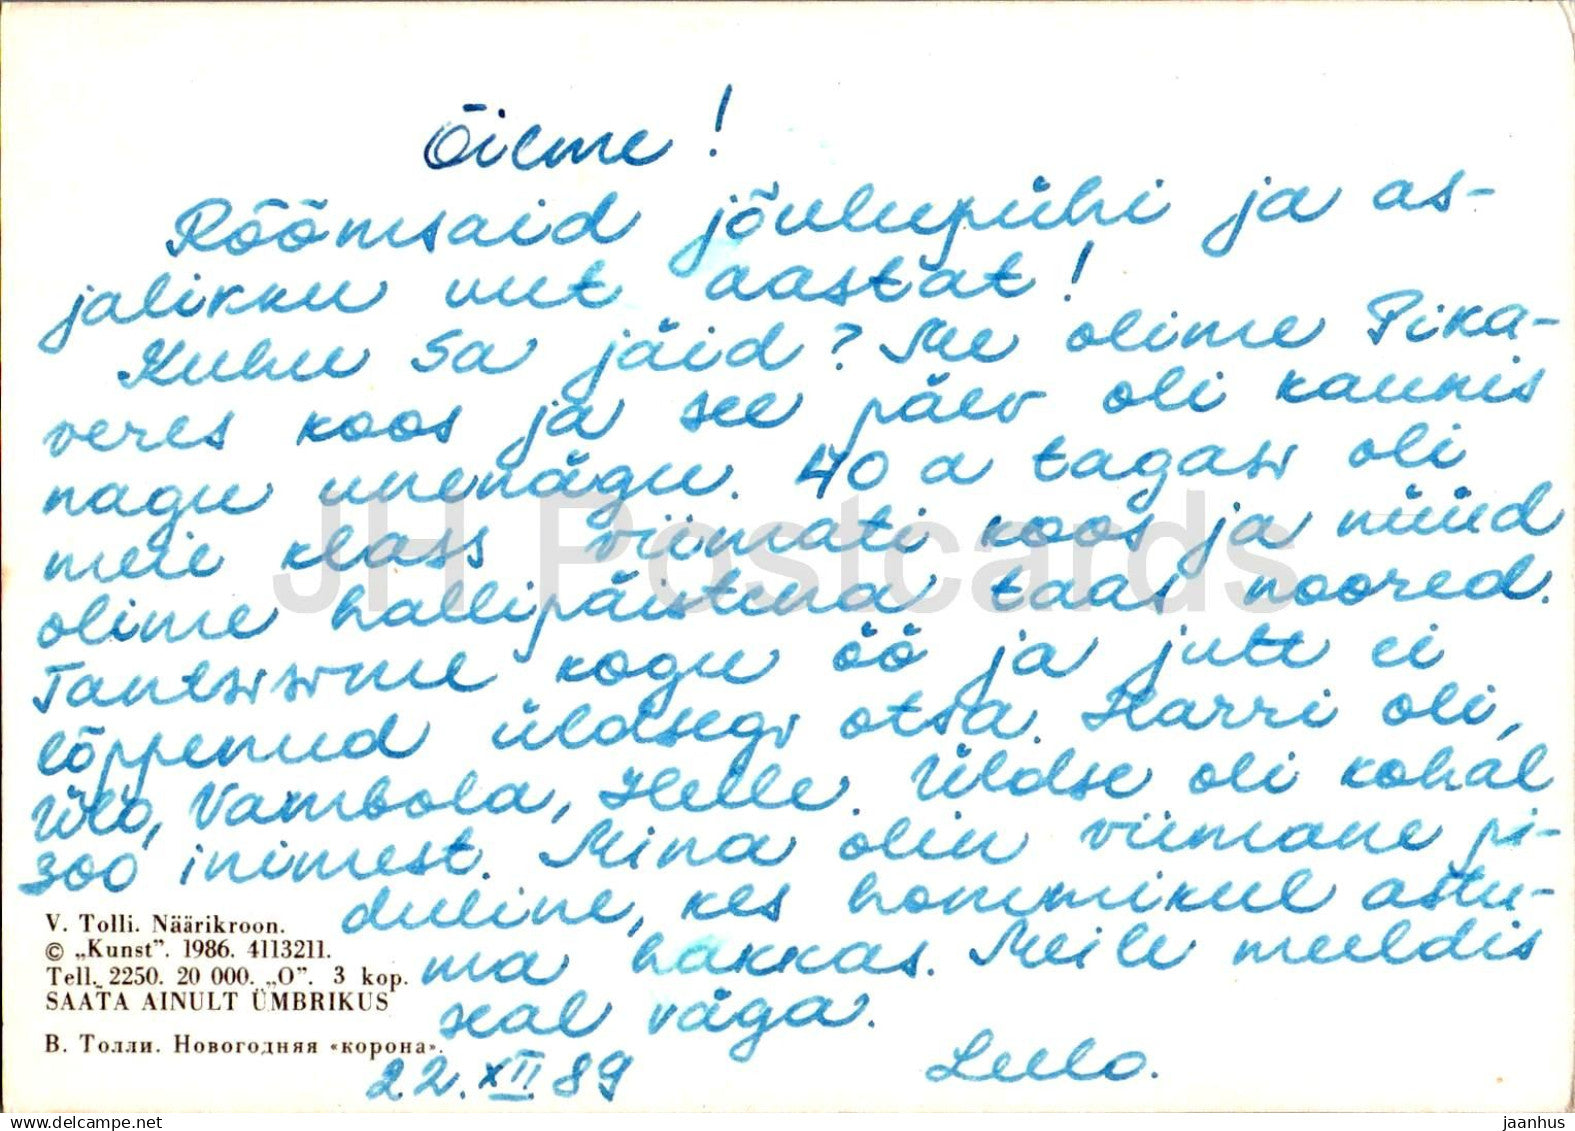 Õilme!
Rõõmsaid jõulupühi ja as-
jalikku uut aastat!
Kuhu Sa jäid? Me olime Pika-
veres koos ja see päev oli kaunis
nagu unenägu. 40 a tagasi oli
meie klass viimati koos ja nüüd
olime hallipäistena taas noored.
Tantsisime kogu öö ja jutt ei
lõppenud üldsegi otsa. Harri oli,
Ülo, Vambola, Helle. Üldse oli kohal
300 inimest. Mina olin viimane pi-
duline, kes hommikul astu-
ma hakkas. Meile meeldis
seal väga.
22.XII.89 Leelo.
V. Tolli. Näärikroon.
© „Kunst”. 1986. 4113211.
Tell. 2250. 20 000. „O”. 3 kop.
SAATA AINULT ÜMBRIKUS
В. Толли. Новогодняя «корона».
JH Postcards
www.delcampe.net
jaanhus